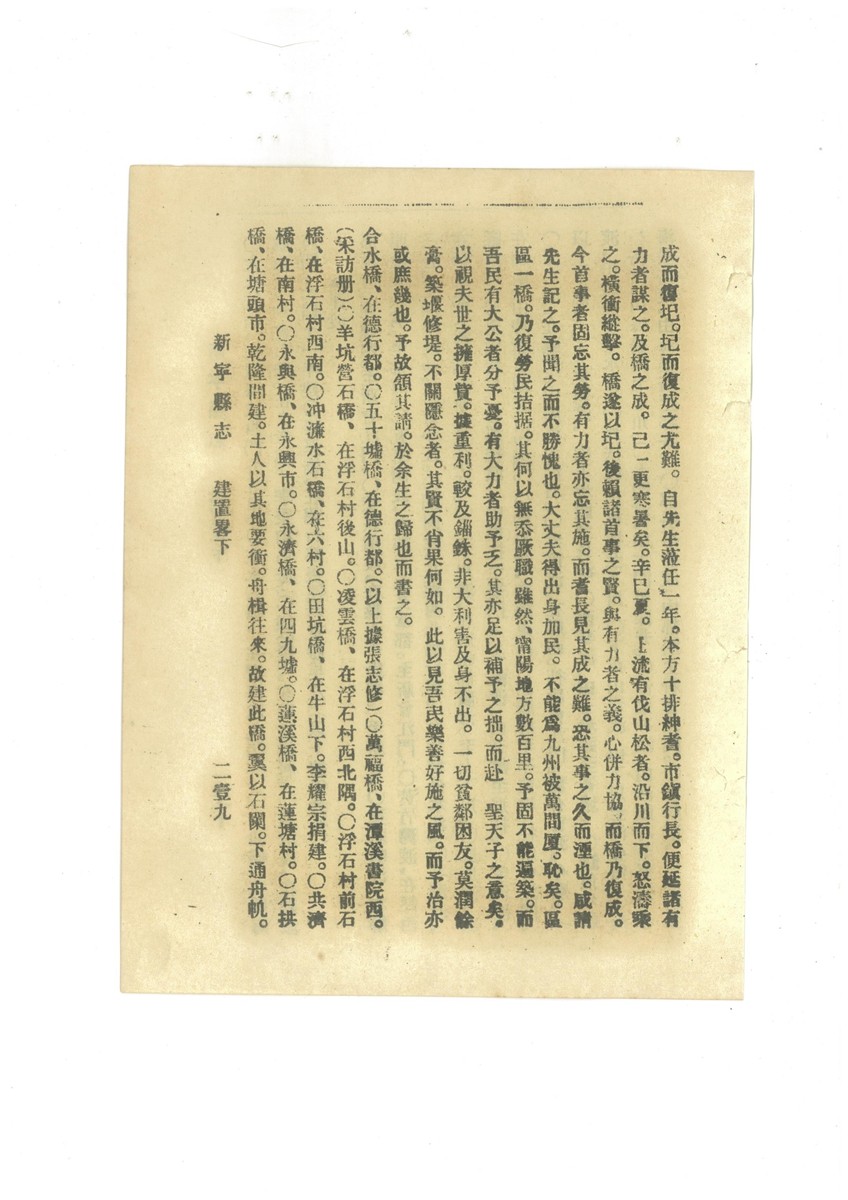 成而復圮。圮而復成之尤難。自先生蒞任一年。本方十排紳耆。市鎭行長。便延諸有
力者謀之。及橋之成。己一更寒暑矣。辛巳夏。上流有伐山松者。沿川而下。怒濤乘
之。橫衝縱擊。橋遂以圮。後賴諸首事之賢。與有力者之義。心併力協。而橋乃復成。
今首事者固忘其勞。有力者亦忘其施。而耆長見其成之難。恐其事之久而湮也。咸請
先生記之。予聞之而不勝愧也。大丈夫得出身加民。不能爲九州被萬間厦。恥矣。區
區一橋。乃復勞民拮据。其何以無忝厥職。雖然、甯陽地方數百里。予固不能遍築。而
吾民有大公者分予憂。有大力者助予乏。其亦足以補予之拙。而赴 聖天子之意矣。
以視夫世之擁厚貲。據重利。較及錙銖。非大利害及身不出。一切貧鄰困友。莫潤餘
膏。築堰修堤。不關隱念者。其賢不肖果何如。此以見吾民樂善好施之風。而予治亦
或庶幾也。予故頷其請。於余生之歸也而書之。
合水橋、在德行都。〇五十墟橋、在德行都。(以上據張志修)〇萬福橋、在潭溪書院西。
(采訪册)〇羊坑營石橋、在浮石村後山。〇凌雲橋、在浮石村西北隅。〇浮石村前石
橋、在浮石村西南。〇冲濂水石橋、在六村。〇田坑橋、在牛山下。李耀宗捐建。〇共濟
橋、在南村。〇永興橋、在永興市。〇永濟橋、在四九墟。〇蓮溪橋、在蓮塘村。〇石拱
橋、在塘頭市。乾隆間建。土人以其地要衝。舟楫往來。故建此橋。翼以石闌。下通舟帆。
新寧縣志 建置畧下 二壹九